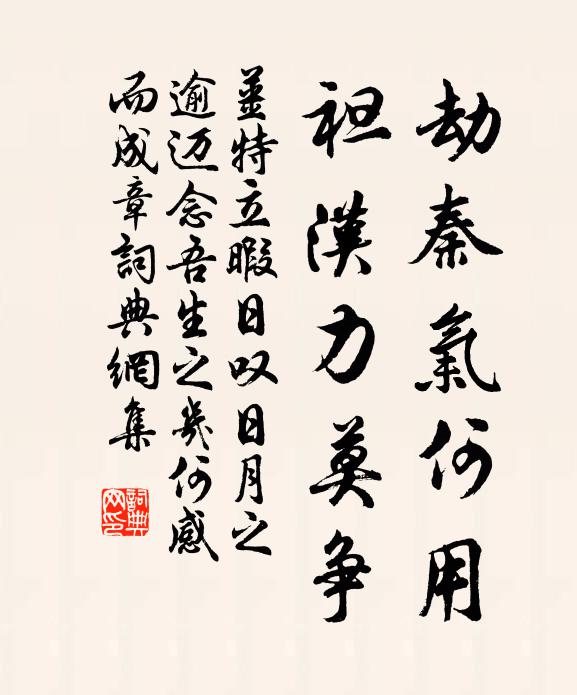 劫秦氣何用
袒漢力莫爭
董特立暇日叹日月之
逾迈念吾生之幾何感
而成章詞典網集
詞典网印